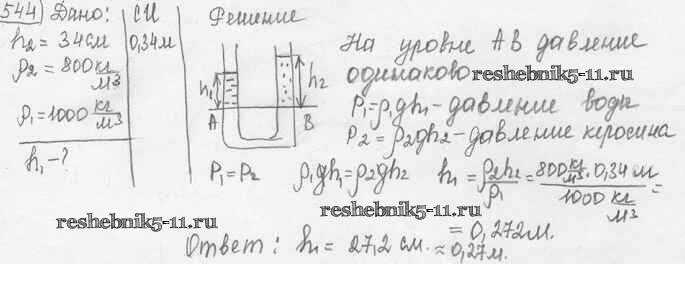 544) Дано: СИ Решение
h₂ = 34см 0,34м
ρ₂ = 800 кг/м³
ρ₁ = 1000 кг/м³
h₁ - ?
h₁ h₂
A B
На уровне AB давление
одинаково reshebnik5-11.ru
P₁ = ρ₁gh₁ - давление воды
P₂ = ρ₂gh₂ - давление керосина
P₁ = P₂ ρ₁gh₁ = ρ₂gh₂ h₁ = ρ₂h₂/ρ₁ = 800 кг/м³ · 0,34 м / 1000 кг/м³ =
reshebnik5-11.ru reshebnik5-11.ru
= 0,272м.
Ответ: h₁ = 27,2 см. ≈ 0,27м.